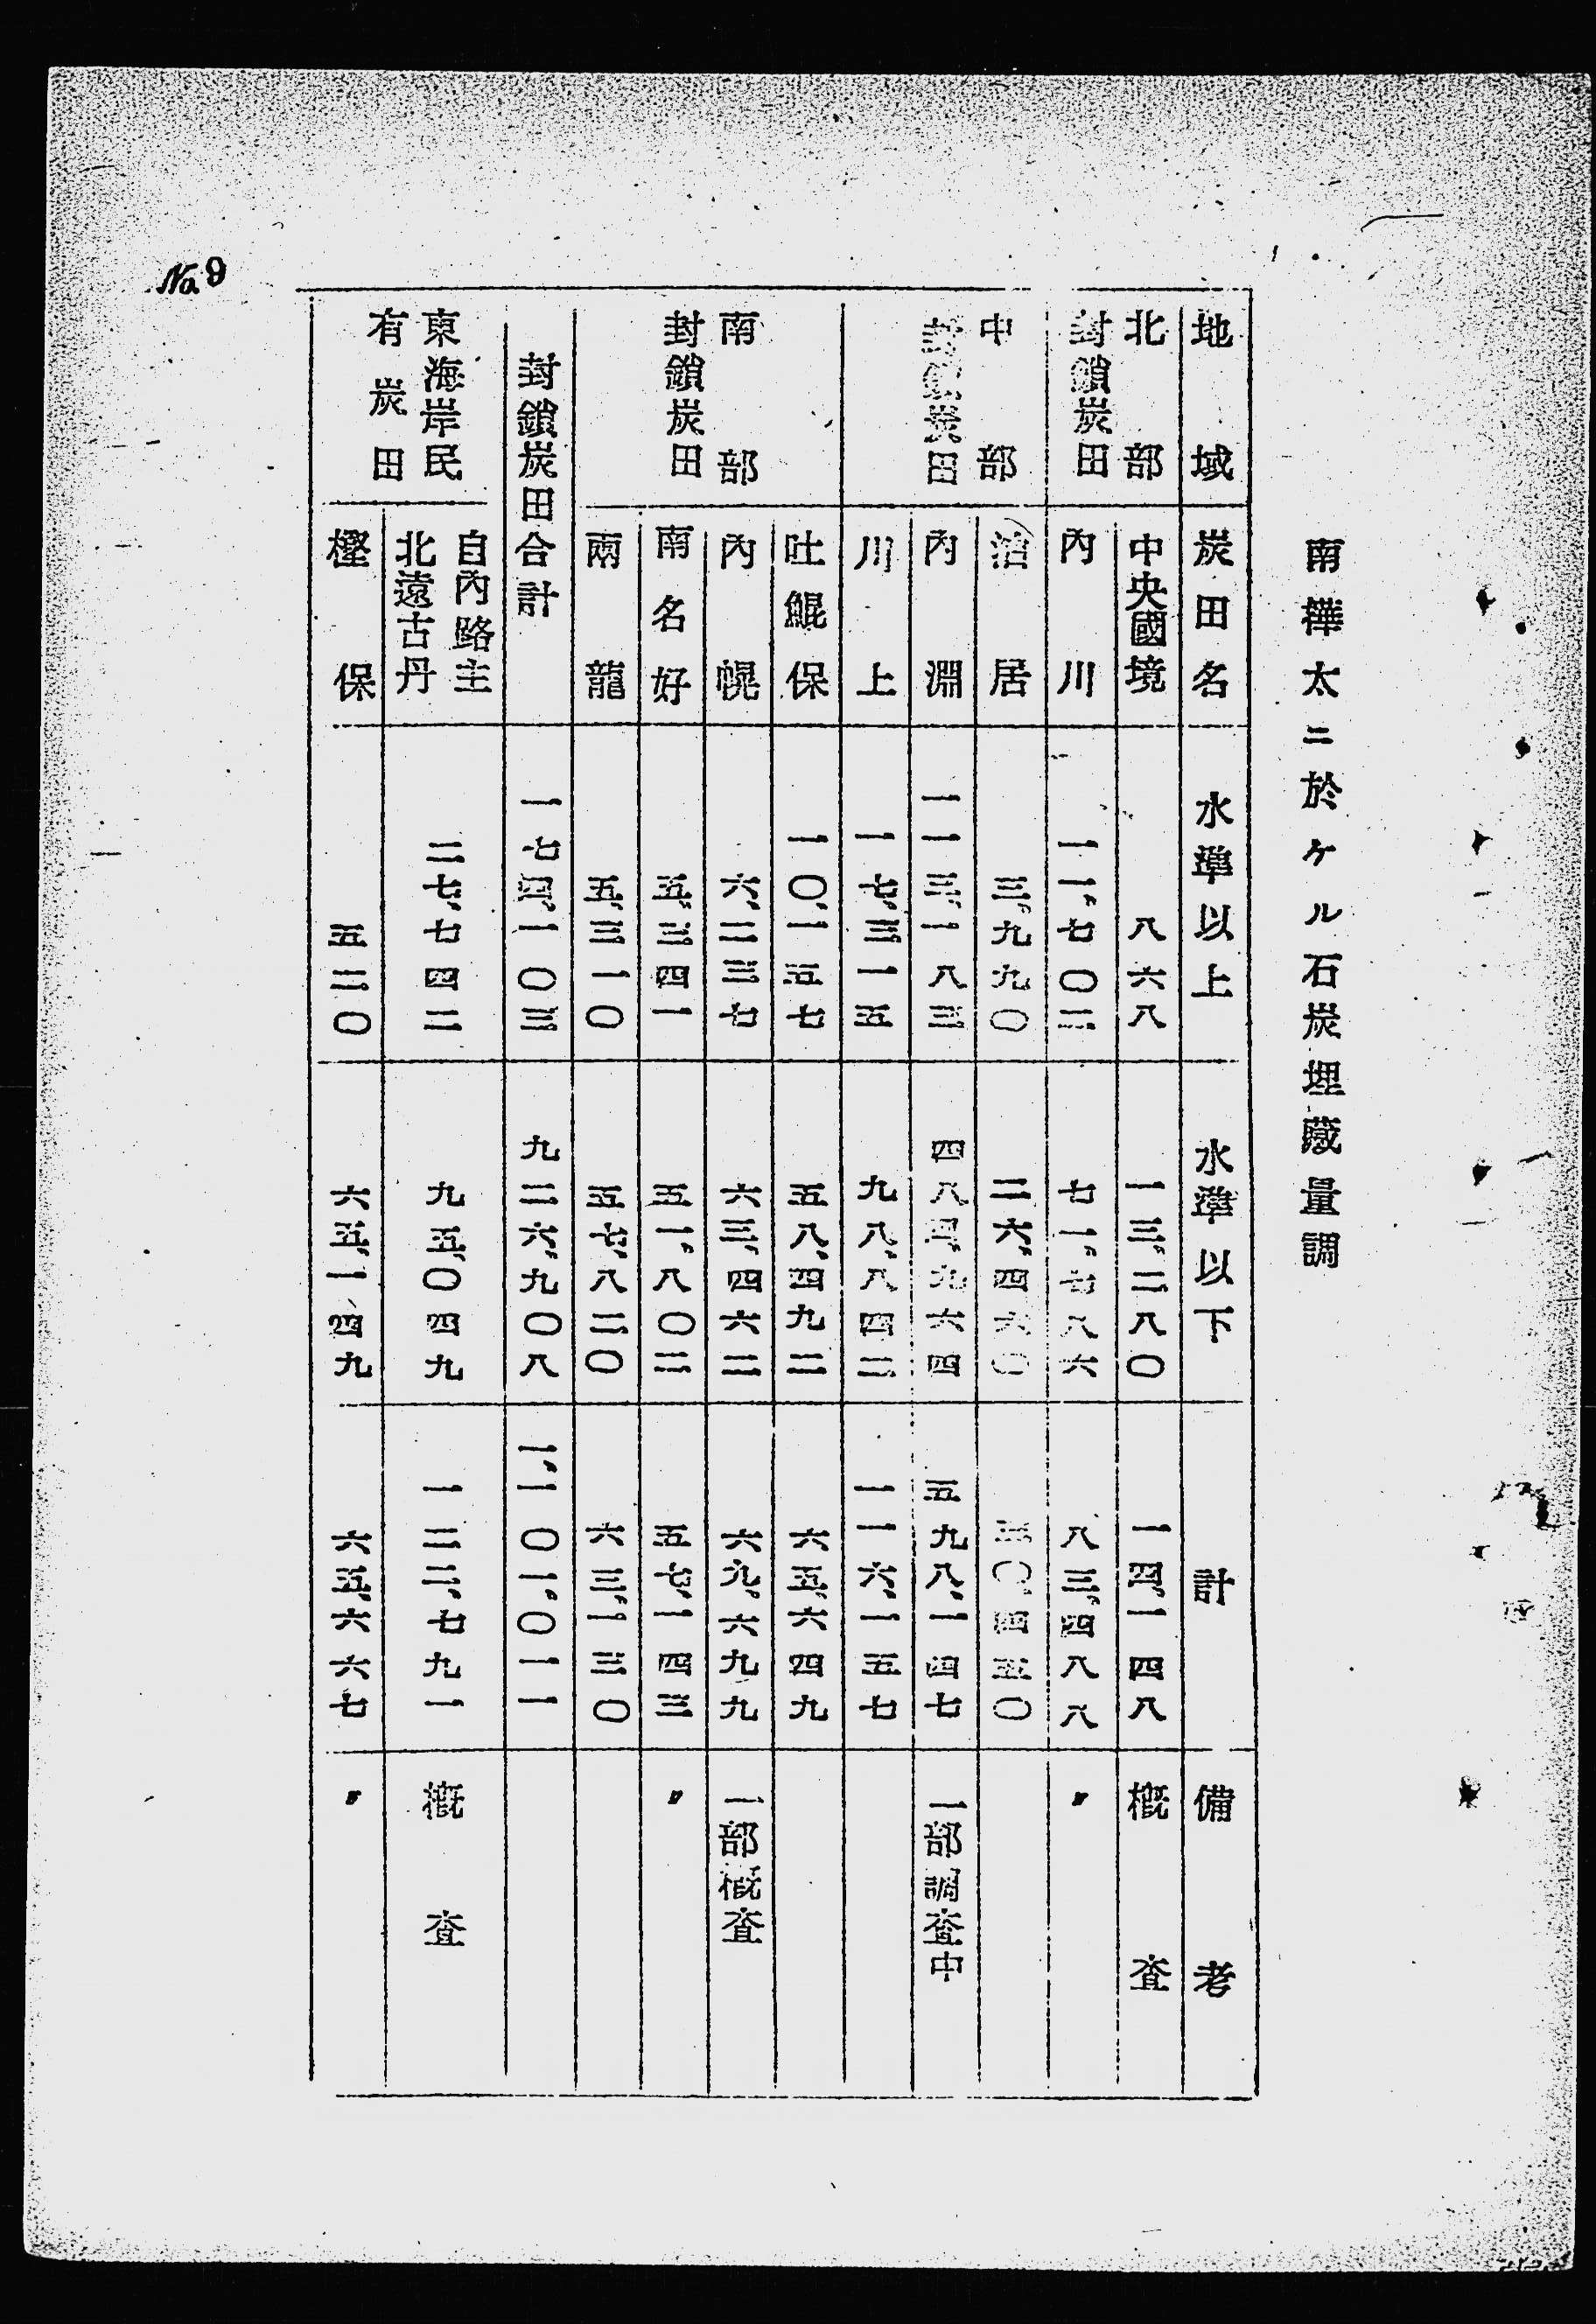 南樺太ニ於ケル石炭埋藏量調
地域 炭田名 水準以上 水準以下 計 備考
北部封鎖炭田 中央國境 八六八 一三、二八〇 一四、一四八 概査
內川 一一、七〇二 七一、七八六 八三、四八八 〃
中部封鎖炭田 泊居 三、九九〇 二六、四六〇 三〇、四五〇
內淵 一一三、一八三 四八四、九六四 五九八、一四七 一部調査中
川上 一七、三一五 九八、八四二 一一六、一五七
南部封鎖炭田 吐鯤保 一〇、一五七 五八、四九二 六五、六四九
內幌 六、二三七 六三、四六二 六九、六九九 一部概査
南名好 五、三四一 五一、八〇二 五七、一四三 〃
雨龍 五、三一〇 五七、八二〇 六三、一三〇
封鎖炭田合計 一七四、一〇三 九二六、九〇八 一、一〇一、〇一一
東海岸民有炭田 自內路主北遠古丹 二七、七四二 九五、〇四九 一二二、七九一 概査
樫保 五二〇 六五、一四九 六五、六六七 〃
No.9